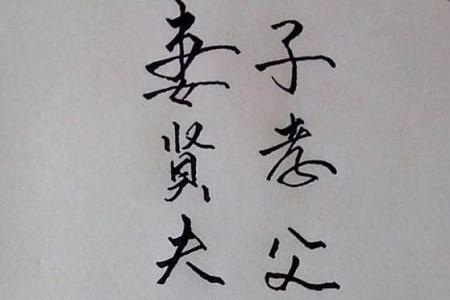 子孝父
妻贤夫